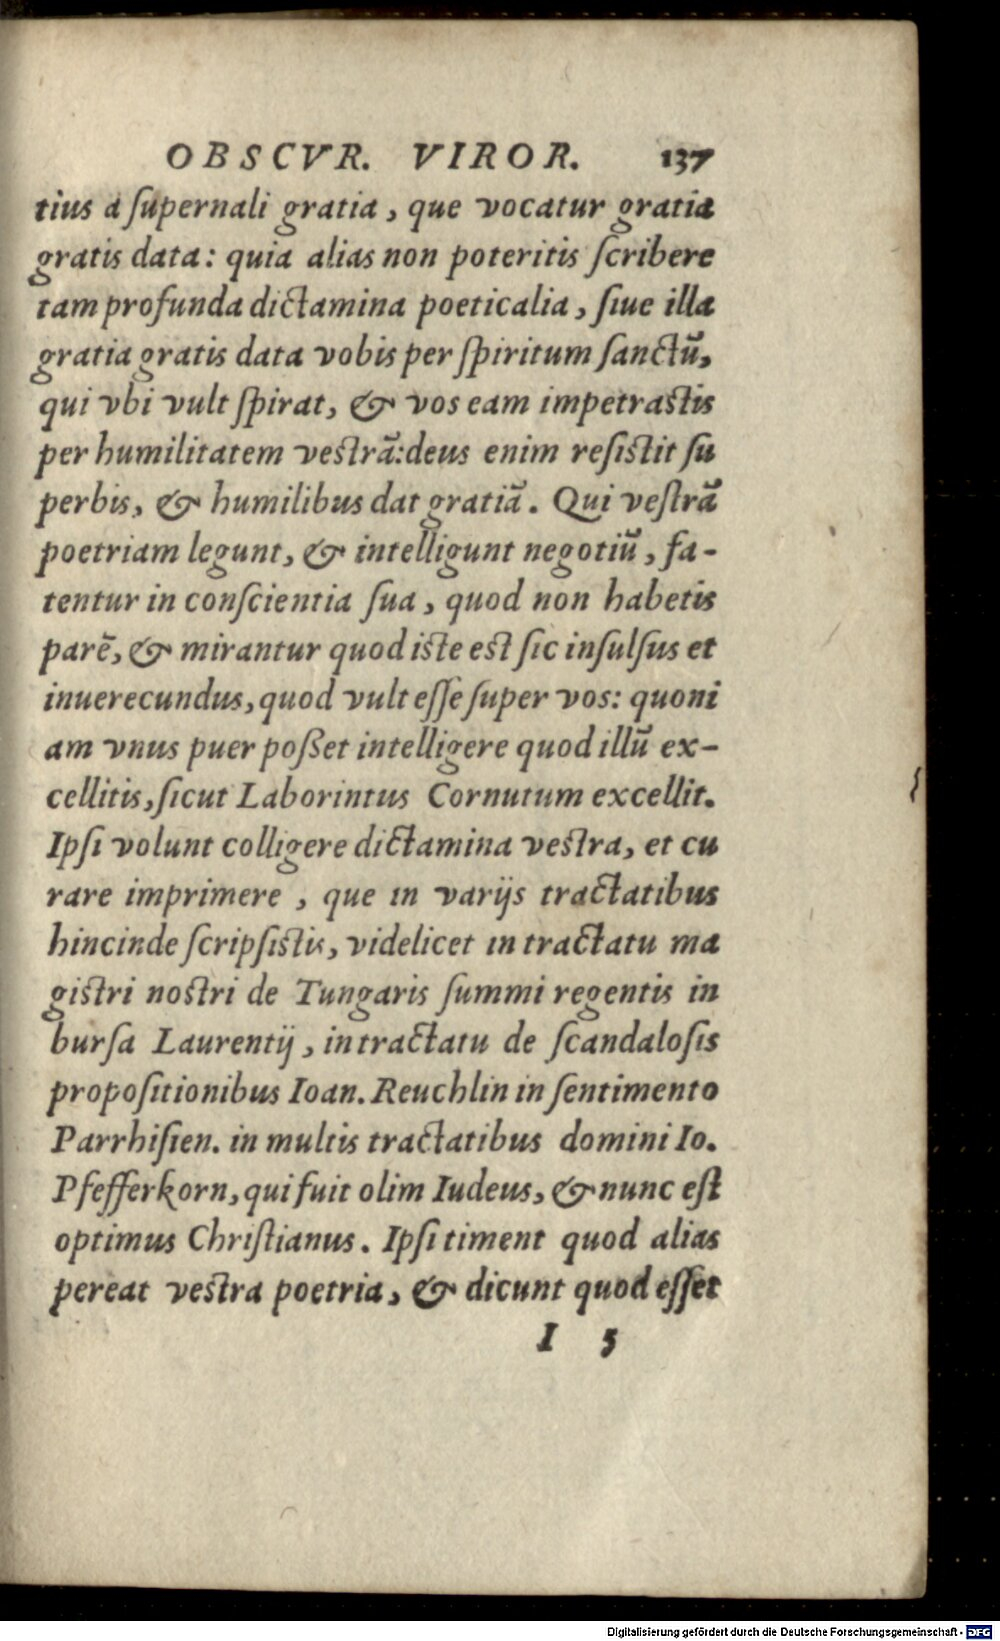 OBSCVR. VIROR. 137
tius a ſupernali gratia, que vocatur gratia
gratis data: quia alias non poteritis ſcribere
tam profunda dictamina poeticalia, ſiue illa
gratia gratis data vobis per ſpiritum ſanctū,
qui vbi vult ſpirat, & vos eam impetraſtis
per humilitatem veſtrā: deus enim reſiſtit ſu
perbis, & humilibus dat gratiā. Qui veſtrā
poetriam legunt, & intelligunt negotiū, fa-
tentur in conſcientia ſua, quod non habetis
parē, & mirantur quod iſte eſt ſic inſulſus et
inuerecundus, quod vult eſſe ſuper vos: quoni
am vnus puer poßet intelligere quod illū ex-
cellitis, ſicut Laborintus Cornutum excellit.
Ipſi volunt colligere dictamina veſtra, et cu
rare imprimere, que in varijs tractatibus
hincinde ſcripſiſtis, videlicet in tractatu ma
giſtri noſtri de Tungaris ſummi regentis in
burſa Laurentij, in tractatu de ſcandaloſis
propoſitionibus Ioan. Reuchlin in ſentimento
Parrhiſien. in multis tractatibus domini Io.
Pfefferkorn, qui fuit olim Iudeus, & nunc eſt
optimus Chriſtianus. Ipſi timent quod alias
pereat veſtra poetria, & dicunt quod eſſet
I 5
Digitalisierung gefördert durch die Deutsche Forschungsgemeinschaft - DFG